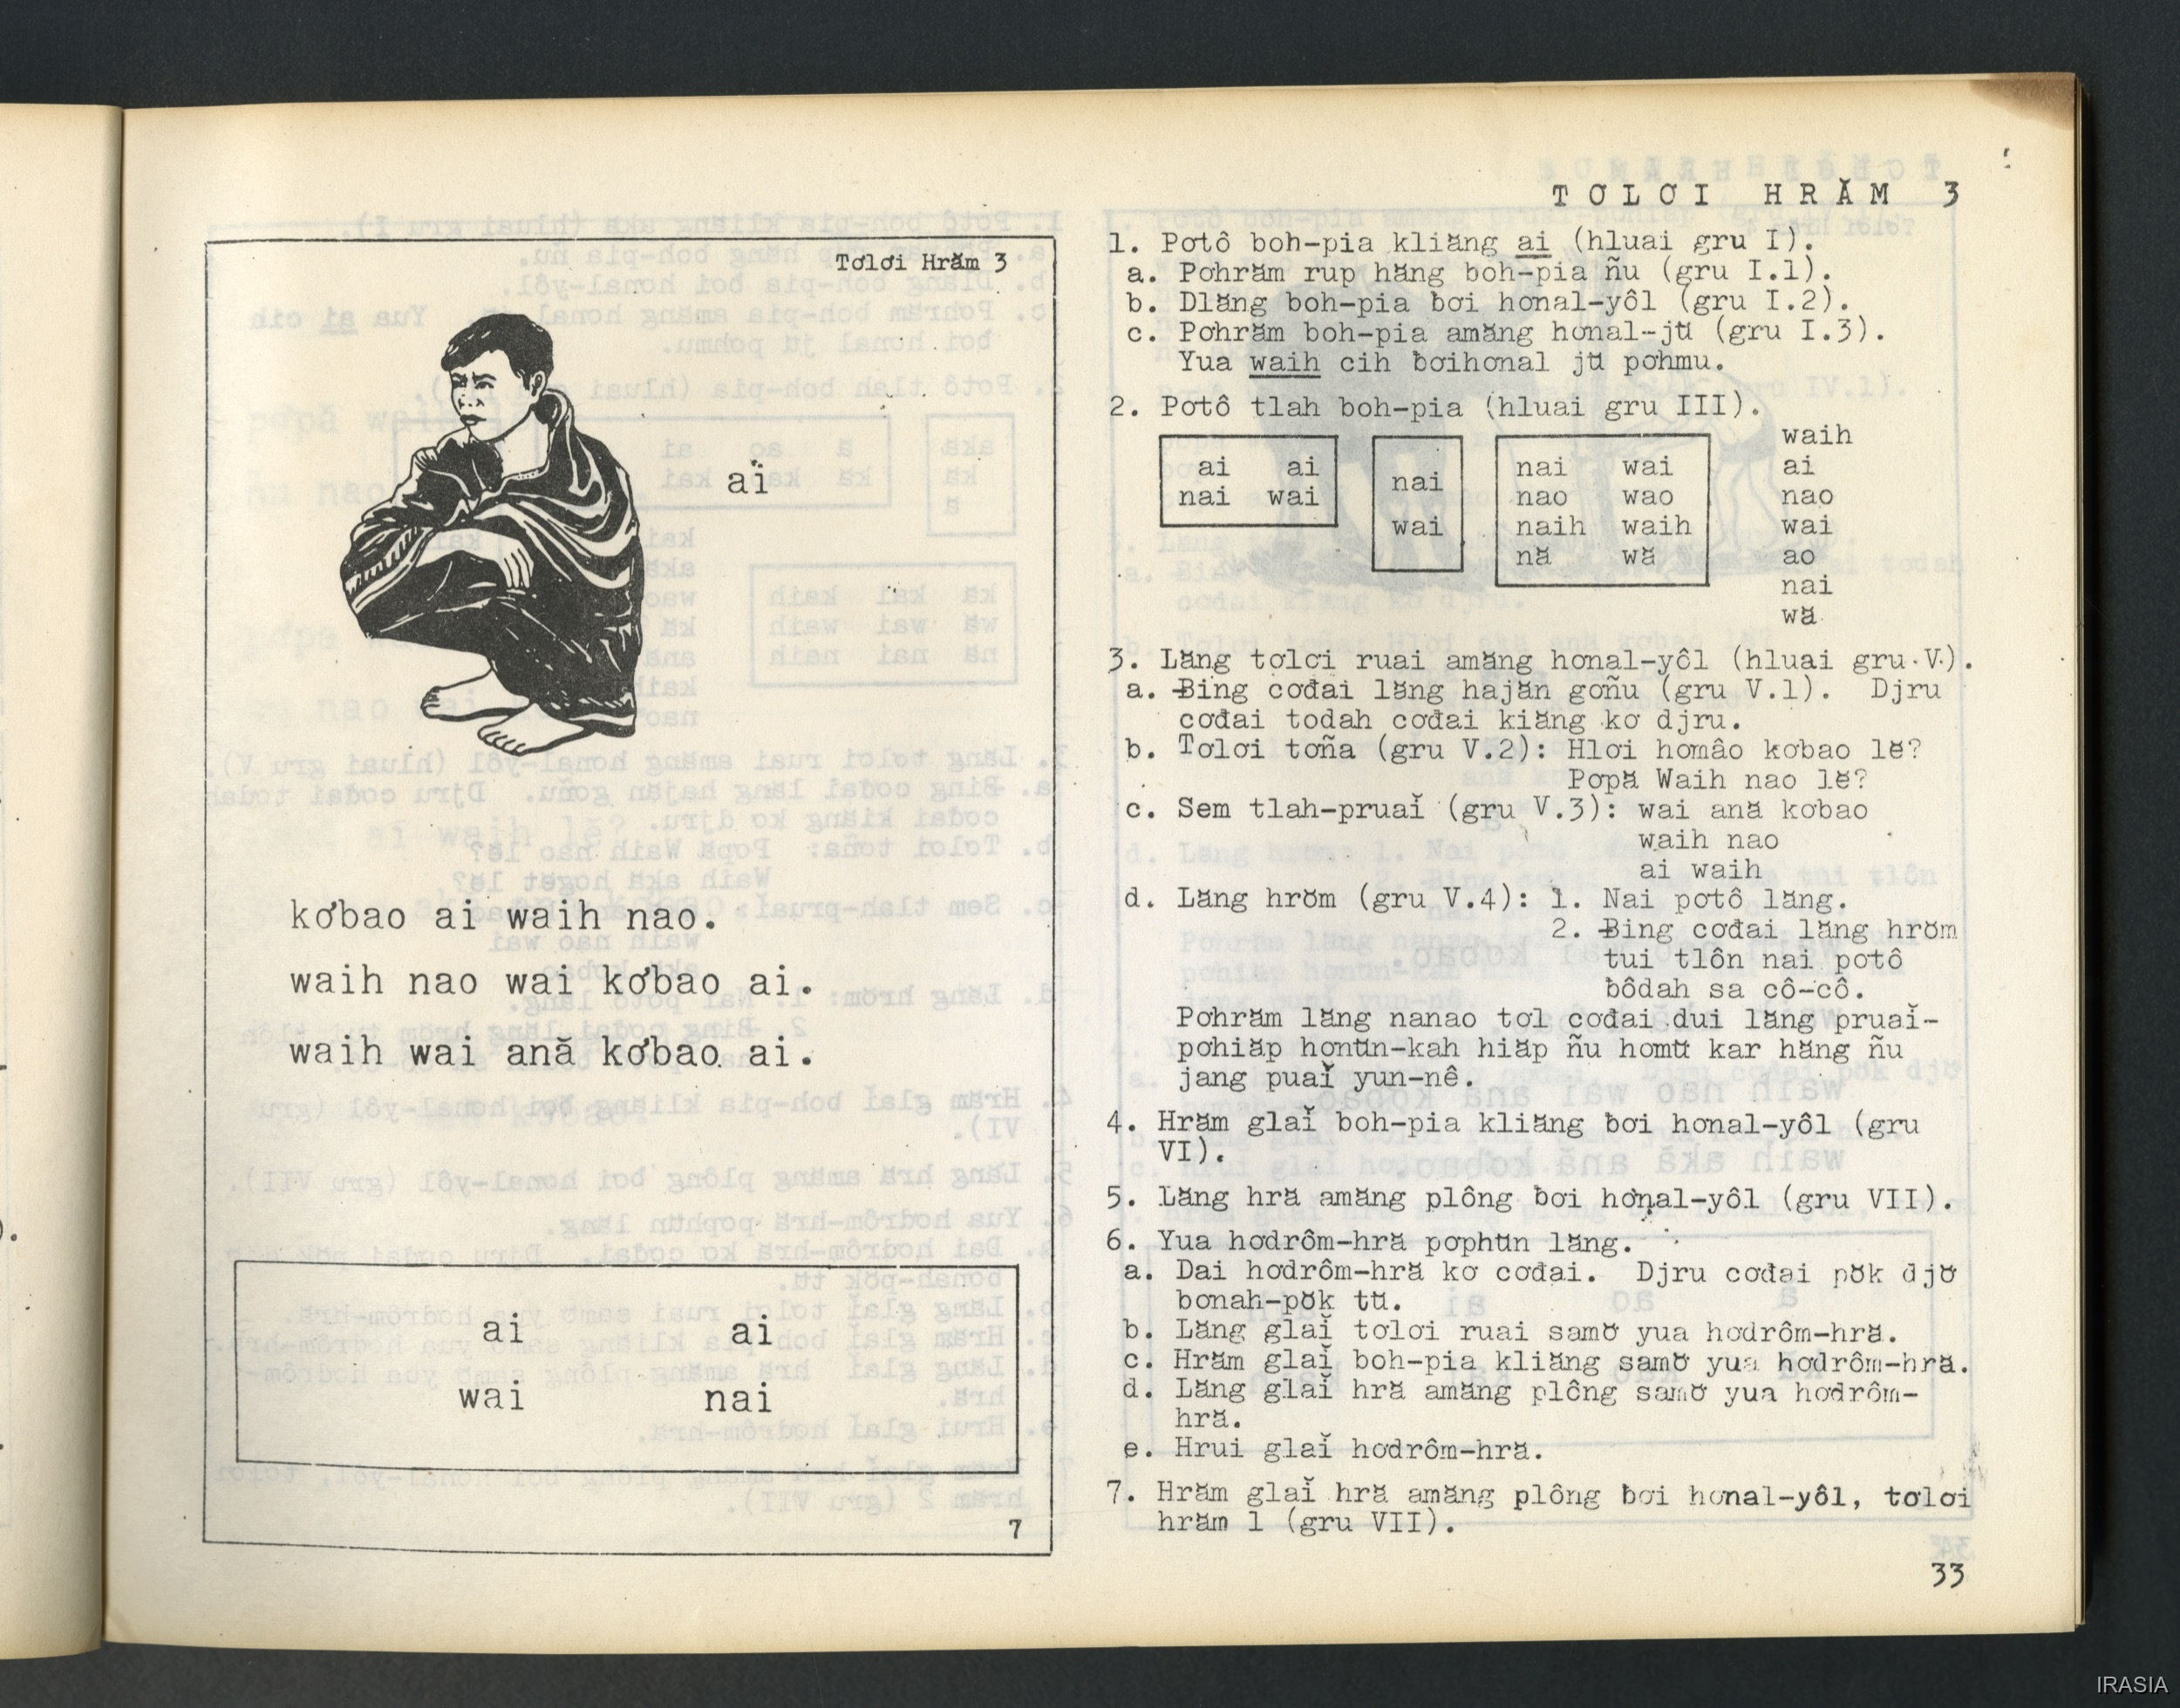 Tơlơi Hrăm 3
ai
kơbao ai waih nao.
waih nao wai kơbao ai.
waih wai ană kơbao ai.
ai ai
wai nai
7
TƠLƠI HRĂM 3
1. Pơtô boh-pia kliăng ai (hluai gru I).
a. Pơhrăm rup hăng boh-pia ñu (gru I.1).
b. Dlăng boh-pia ƀơi hơnal-yôl (gru I.2).
c. Pơhrăm boh-pia amăng hơnal-jŭ (gru I.3).
Yua waih cih ƀơihơnal jŭ pơhmu.
2. Pơtô tlah boh-pia (hluai gru III).
ai ai
nai wai
nai
wai
nai wai
nao wao
naih waih
nă wă
waih
ai
nao
wai
ao
nai
wă
3. Lăng tơlơi ruai amăng hơnal-yôl (hluai gru V).
a. Ƀing cơđai lăng hajăn gơñu (gru V.1). Djru
cơđai tơdah cơđai kiăng kơ djru.
b. Tơlơi tơña (gru V.2): Hlơi hơmâo kơbao lĕ?
Pơpă Waih nao lĕ?
c. Sem tlah-pruaĭ (gru V.3): wai ană kơbao
waih nao
ai waih
d. Lăng hrŏm (gru V.4): 1. Nai pơtô lăng.
2. Ƀing cơđai lăng hrŏm
tui tlôn nai pơtô
ƀôdah sa cô-cô.
Pơhrăm lăng nanao tơl cơđai dui lăng pruaĭ-
pơhiăp hơnŭn-kah hiăp ñu hơmŭ kar hăng ñu
jang puaĭ yun-nê.
4. Hrăm glaĭ boh-pia kliăng ƀơi hơnal-yôl (gru
VI).
5. Lăng hră amăng plông ƀơi hơnal-yôl (gru VII).
6. Yua hơdrôm-hră pơphŭn lăng.
a. Dai hơdrôm-hră kơ cơđai. Djru cơđai pŏk djơ̆
bơnah-pŏk tŭ.
b. Lăng glaĭ tơlơi ruai samơ̆ yua hơdrôm-hră.
c. Hrăm glaĭ boh-pia kliăng samơ̆ yua hơdrôm-hră.
d. Lăng glaĭ hră amăng plông samơ̆ yua hơdrôm-
hră.
e. Hrui glaĭ hơdrôm-hră.
7. Hrăm glaĭ hră amăng plông ƀơi hơnal-yôl, tơlơi
hrăm 1 (gru VII).
33
IRASIA